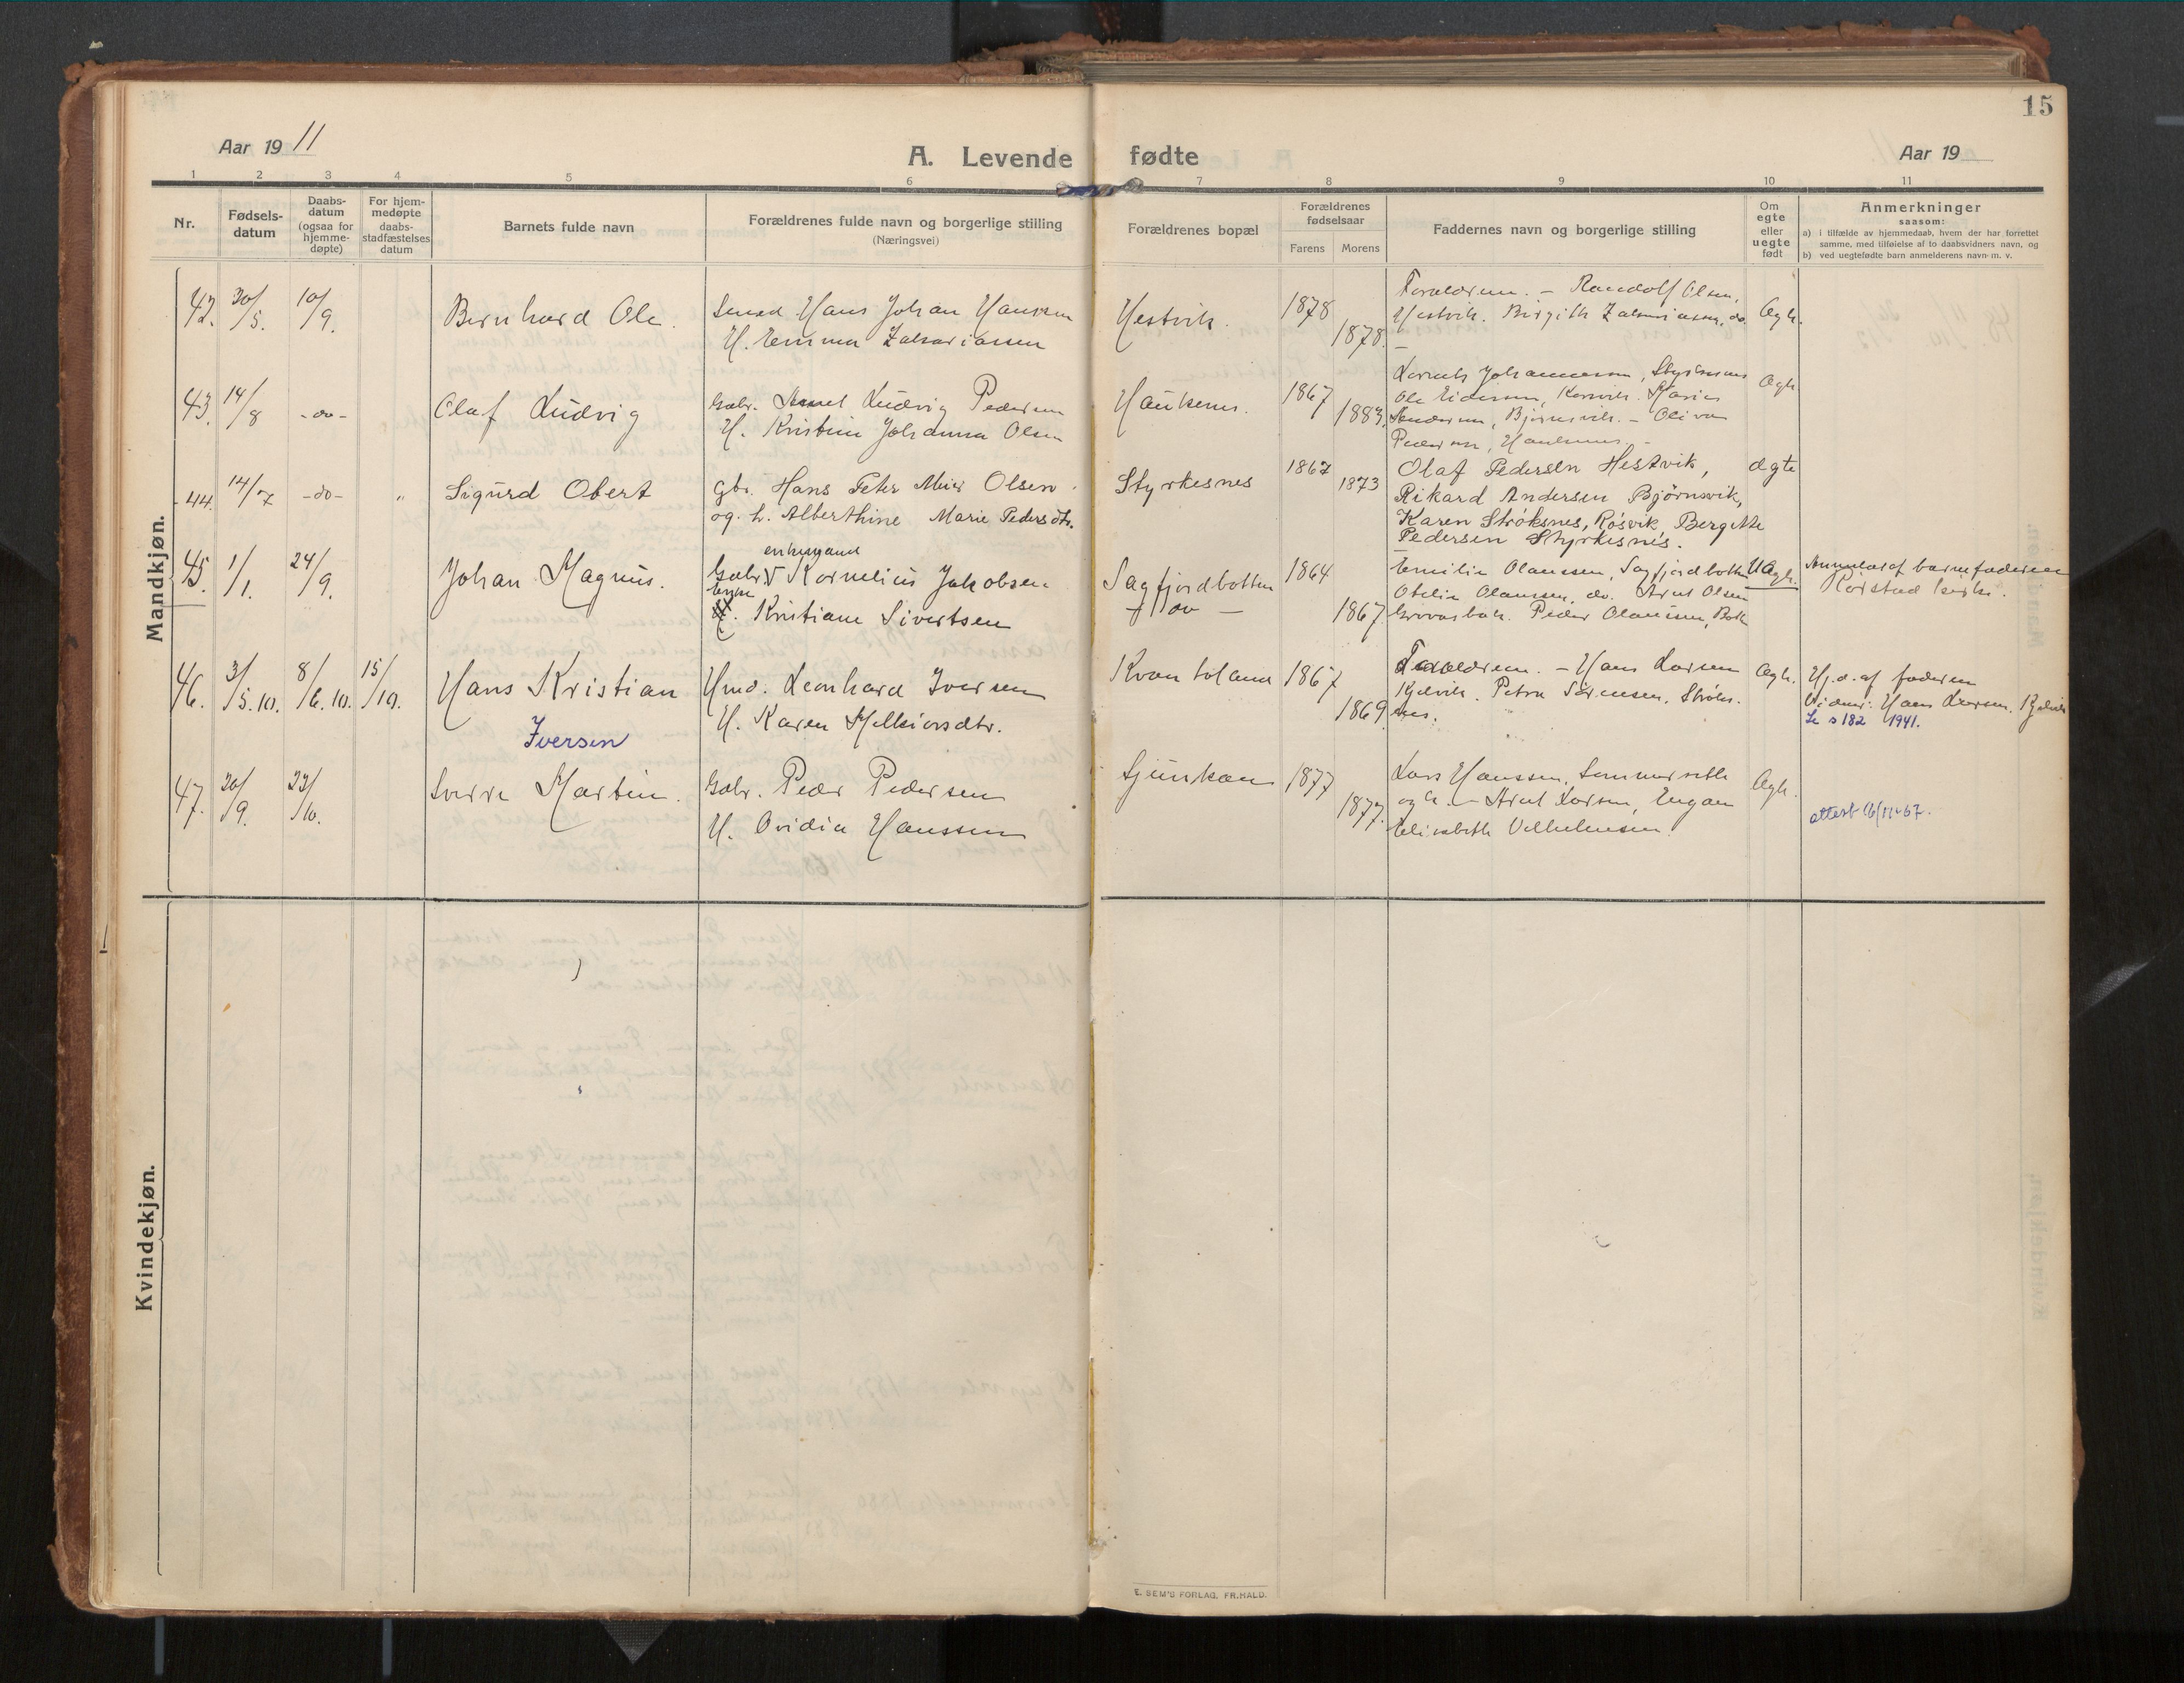 15
Aar 1911
A. Levende fødte
Aar 19
1 2 3 4 5 6 7 8 9 10 11
Nr.
Fødsels-
datum
Daabs-
datum
(ogsaa for
hjemme-
døpte)
For hjem-
medøpte
daabs-
stadfæstelses
datum
Barnets fulde navn
Forældrenes fulde navn og borgerlige stilling
(Næringsvei)
Forældrenes bopæl
Forældrenes
fødselsaar
Farens Morens
Faddernes navn og borgerlige stilling
Om
egte
eller
uegte
født
Anmerkninger
saasom:
a) i tilfælde av hjemmedaab, hvem der har forrettet
samme, med tilføielse af to daabsvidners navn, og
b) ved uegtefødte barn anmelderens navn m. v.
Mandkjøn.
42. 30/5. 10/9. Bernhard Ole. Hans Johan Hanssen
H. Emma Zakariassen
Hestvik. 1878
1878.
Forældrene. – Randolf Olsen,
Hestvik. Birgith Zakariassen, do.
Ægte.
43. 14/8 -do- Olaf Ludvig Gbr. Ludvig Pedersen
H. Kristine Johanna Olsen
Haukenes. 1867
1883.
Johannessen, Styrkesnes
Ole Eidersen, Marius
Andersen, Bjørnsvik. – Oliva
Pedersen, Haukenes. –
Ægte
44. 14/7 -do- " Sigurd Obert Gbr. Hans Peter Meier Olsen
og h. Alberthine Marie Pedersdtr.
Styrkesnes 1867
1873
Olaf Pedersen Hestvik,
Rikard Andersen Bjørnsvik,
Karen Strøksnes, Røsvik, Bergitte
Pedersen Styrkesnes.
ægte
45. 1/1. 24/9. Johan Magnus. enkemand
Gabr. Kornelius Jakobsen
Enke
H. Kristiane Sivertsen
Sagfjordbotten
– do –
1864
1867.
Emilie Olaussen, Sagfjordbotten
Otelie Olaussen, do. Arnt Olsen
Peder Olaussen, Botn
Uægte.
Anmeldt af barnefaderen
Rørstad kirke.
46. 3/5.10. 8/6.10. 15/10. Hans Kristian
Iversen
Hmd. Leonhard Iversen
H. Karen Melkiorsdtr.
Kvantoland 1867
1869
Forældrene. – Hans Larsen
Kjelvik. Petra Sørensen, Strøks-
nes.
Ægte.
Hj.d. af faderen
Vidner: Hans Larsen. Kjelvik
Se s 182 1941.
47. 20/9. 23/10. Sverre Martin. Gabr. Peder Pedersen
H. Ovidia Hanssen
Sjunkan 1877
1877.
Lars Hanssen, Sommerseth
og h. – Arnt Larsen, Engan
Elisabeth Vilhelmsen.
Ægte.
attest 16/11-67.
Kvindekjøn.
E. SEM'S FORLAG. FR.HALD.